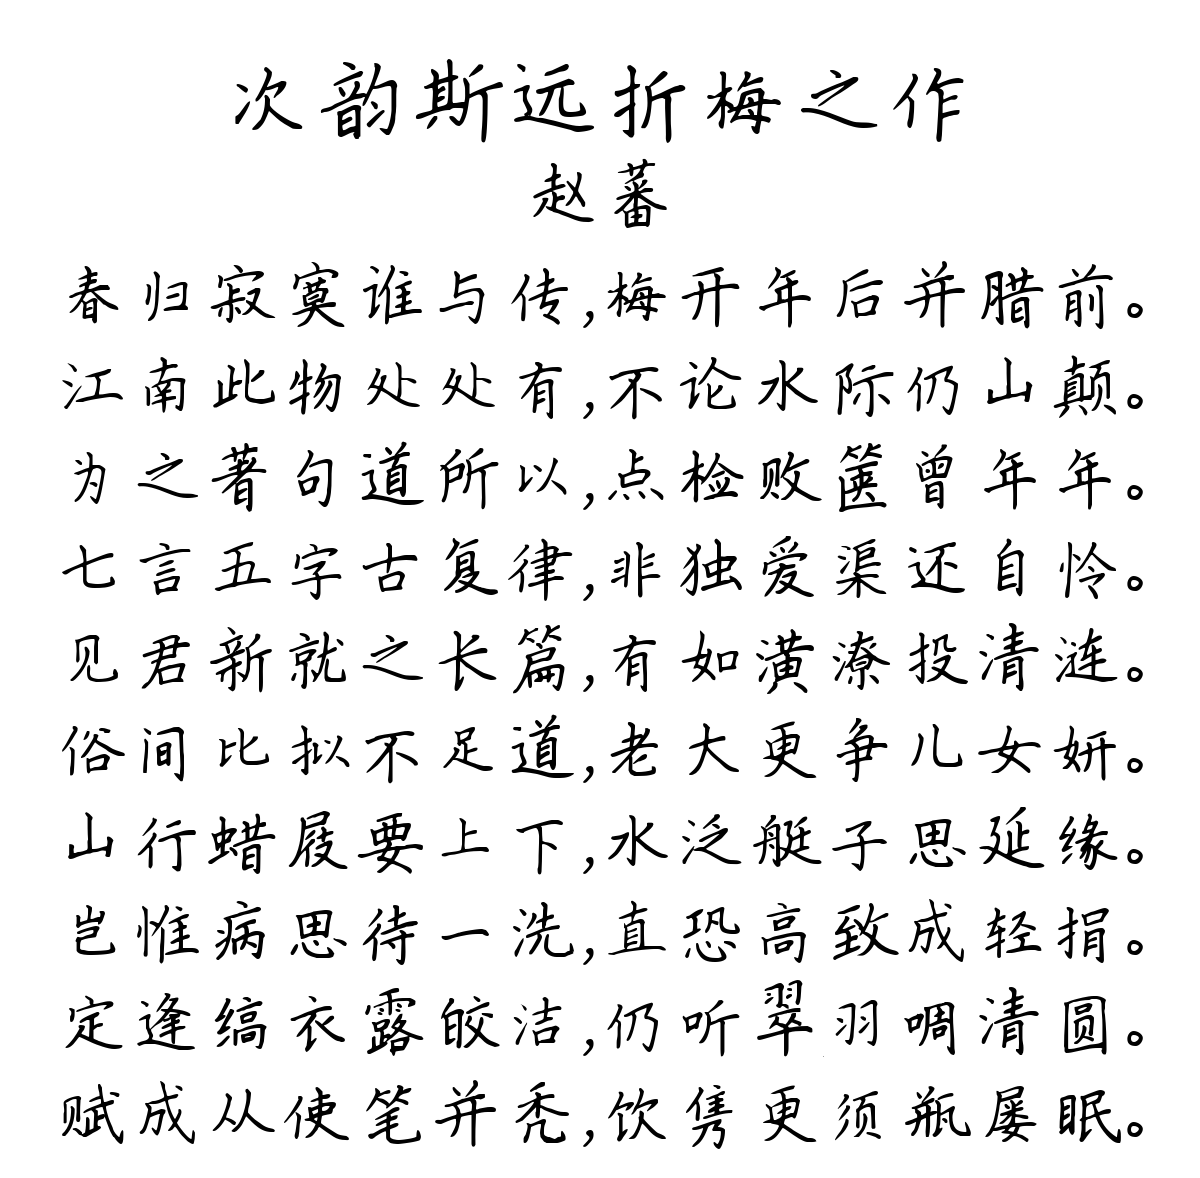 次韵斯远折梅之作
赵蕃
春归寂寞谁与传,梅开年后并腊前。
江南此物处处有,不论水际仍山颠。
为之著句道所以,点检败箧曾年年。
七言五字古复律,非独爱渠还自怜。
见君新就之长篇,有如潢潦投清涟。
俗间比拟不足道,老大更争儿女妍。
山行蜡屐要上下,水泛艇子思延缘。
岂惟病思待一洗,直恐高致成轻捐。
定逢缟衣露皎洁,仍听翠羽啁清圆。
赋成从使笔并秃,饮隽更须瓶屡眠。